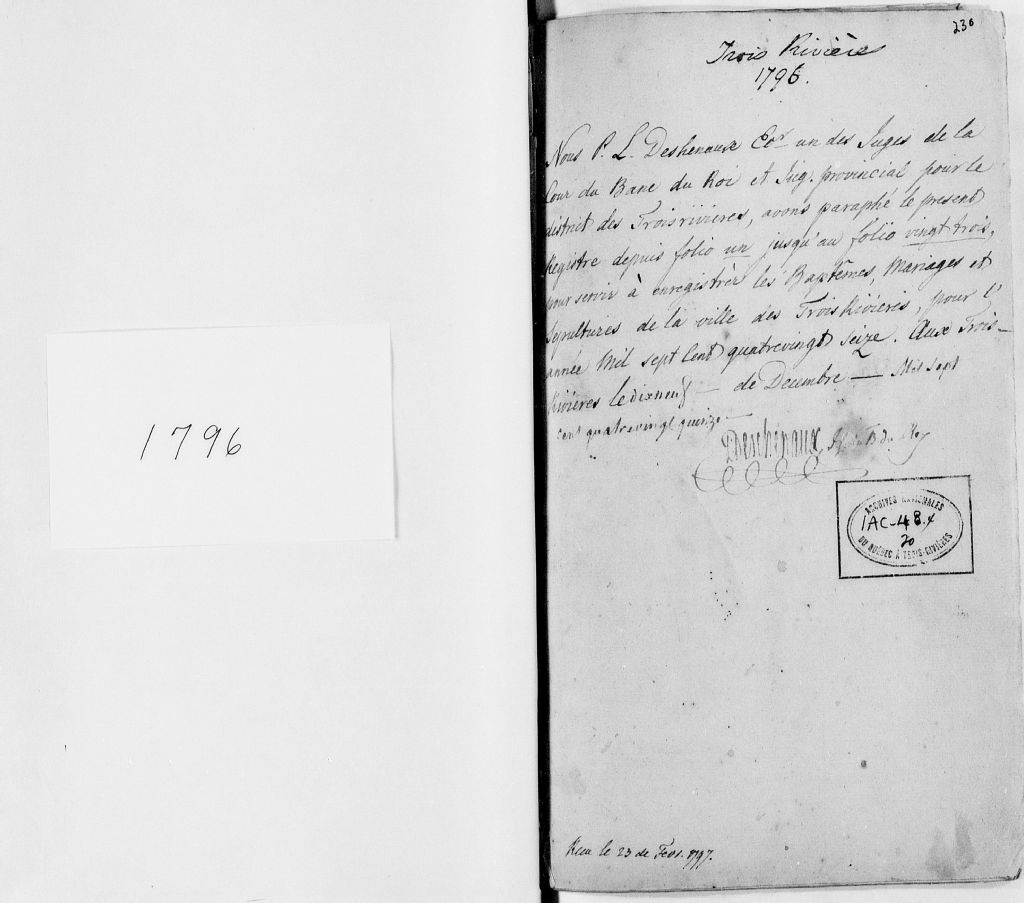 1796
230
Trois Rivières
1796.
Nous P. L. Deshenaux Ecr un des Juges de la
Cour du Banc du Roi et Jug. provincial pour le
district des Troisrivieres, avons paraphé le present
Registre depuis folio un jusqu'au folio vingt trois,
pour servir à enregistrèr les Baptêmes, Mariages et
Sépultures de la ville des Trois Rivieres, pour l'
année Mil sept Cent quatrevingt seize. Aux Trois-
Rivières le dixneuf — de Decembre — Mil Sept
cent quatrevingt quinze
PDeschenaux
ARCHIVES NATIONALES
1AC-48.4
20
DU QUÉBEC À TROIS-RIVIÈRES
Recu le 23 de Fevr. 1797.